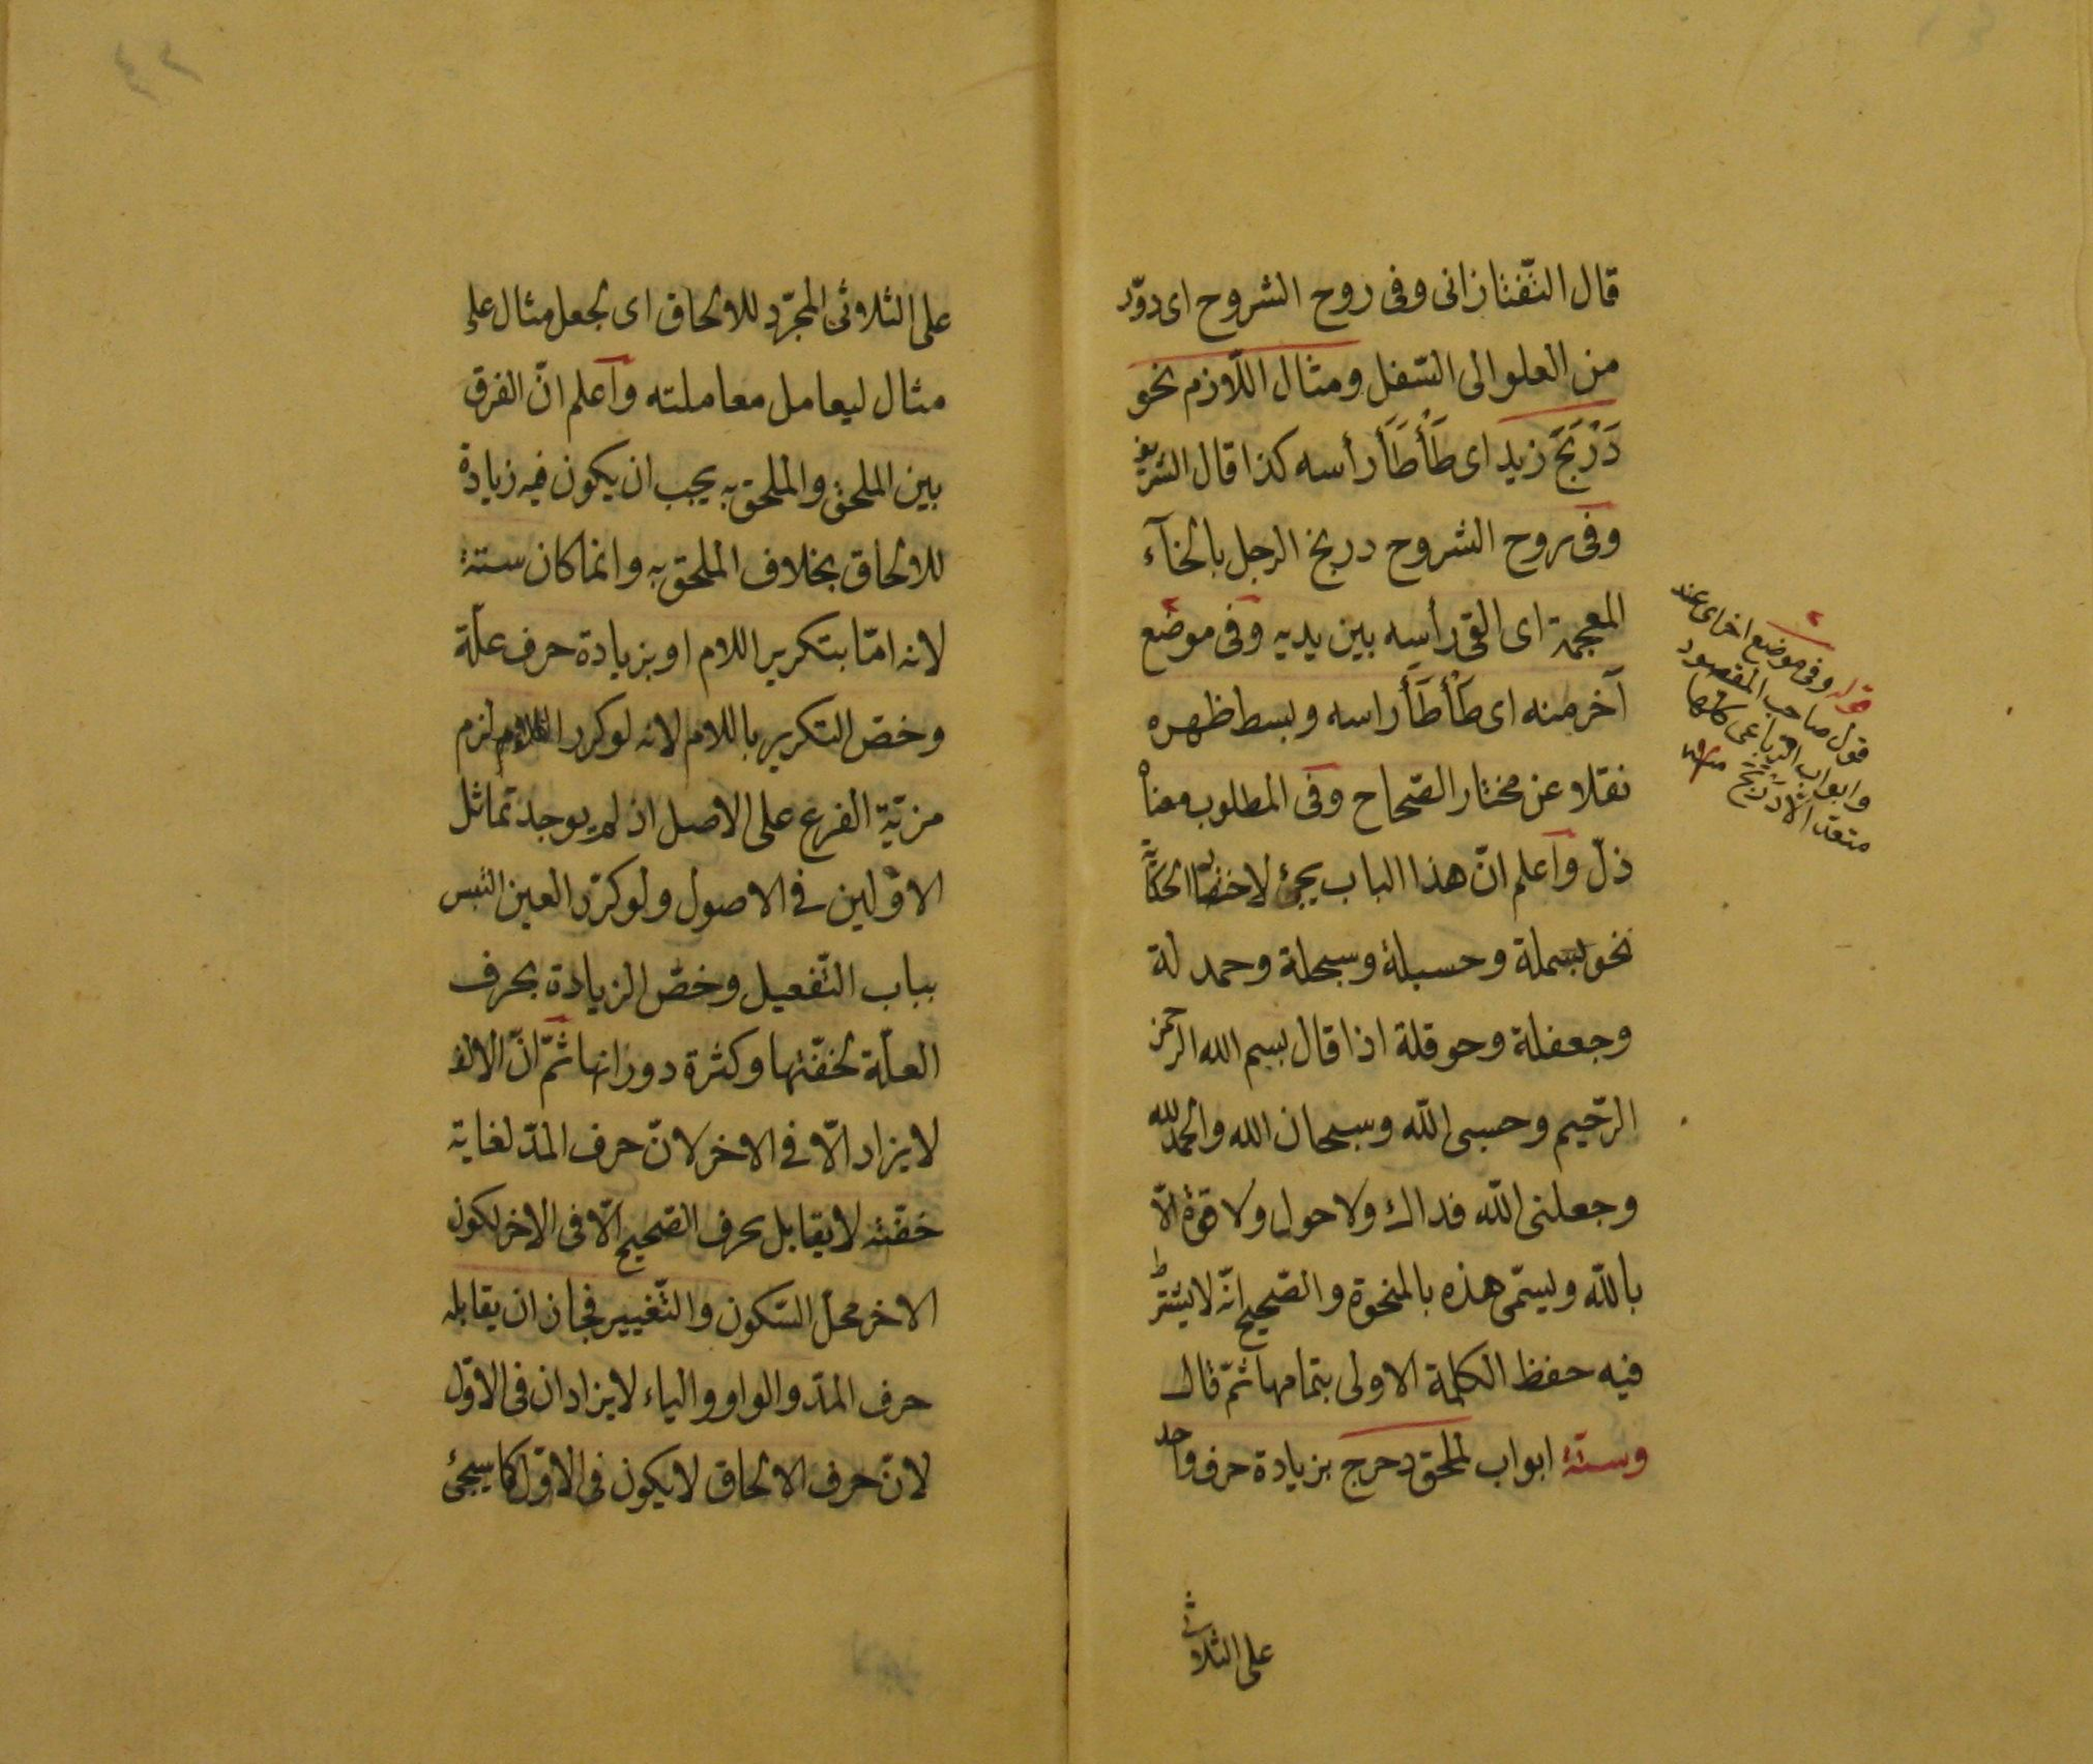 قال التّفتازانى وفى روح الشروح اى دوّر
من العلو الى السّفل ومثال اللّازم نحو
دَرْبَخَ زيد اى طَأْطَأَ رأسه كذا قال الشريف
وفى روح الشروح دربخ الرجل بالخآء
المعجمة اى القى رأسه بين يديه وفى موضع
آخر منه اى طَأْطَأَ راسه وبسط ظهره
نقلا عن مختار الصّحاح وفى المطلوب معناه
ذلّ واعلم انّ هذا الباب يجئ لاختصار الحكاية
نحو بسملة وحسبلة وسبحلة وحمد لة
وجعفلة وحوقلة اذا قال بسم الله الرحمن
الرّحيم وحسبى اللّه وسبحان الله والحمد لله
وجعلنى اللّه فداك ولا حول ولا قوّة الّا
باللّه ويسمّى هذه بالمنحوة والصّحيح انّه لا يشترط
فيه حفظ الكلمة الاولى بتمامها ثمّ قال
وستّة ابواب لملحق دحرج بزيادة حرف واحد
على الثلاثى
قوله وفى موضع اخر اى عند
قول صاحب المقصود
وابواب الرّباعى كلها
متعدّ الا دَرْبَخَ منه
على الثلاثى المجرّد للالحاق اى لجعل مثال على
مثال ليعامل معاملته واعلم انّ الفرق
بين الملحق والملحق به يجب ان يكون فيه زيادة
للالحاق بخلاف الملحق به وانما كان ستة
لانه امّا بتكرير اللام او بزيادة حرف علّة
وخصّ التكرير باللام لانه لو كرر لزم
مزيّة الفرع على الاصل اذ لم يوجد تماثل
الاوّلين فى الاصول ولو كرّر العين التبس
بباب التّفعيل وخصّ الزيادة بحرف
العلّة لخفّتها وكثرة دورانها ثمّ انّ الالف
لا يزاد الّا فى الاخر لانّ حرف المدّ لغاية
خفّته لا يقابل بحرف الصّحيح الّا فى الاخر لكون
الاخر محلّ السّكون والتّغيير فجاز ان يقابله
حرف المدّ والواو والياء لا يزادان فى الاوّل
لانّ حرف الالحاق لا يكون فى الاوّل كما سيجئ